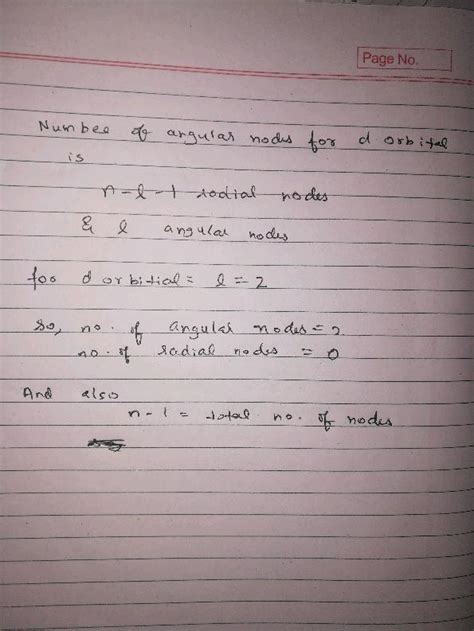 Page No.
Number of angular nodes for d orbital
is
n-l-1 radial nodes
& l angular nodes
for d orbitial = l = 2
so, no. of angular nodes = 2
no. of radial nodes = 0
And also
n-1 = total no. of nodes